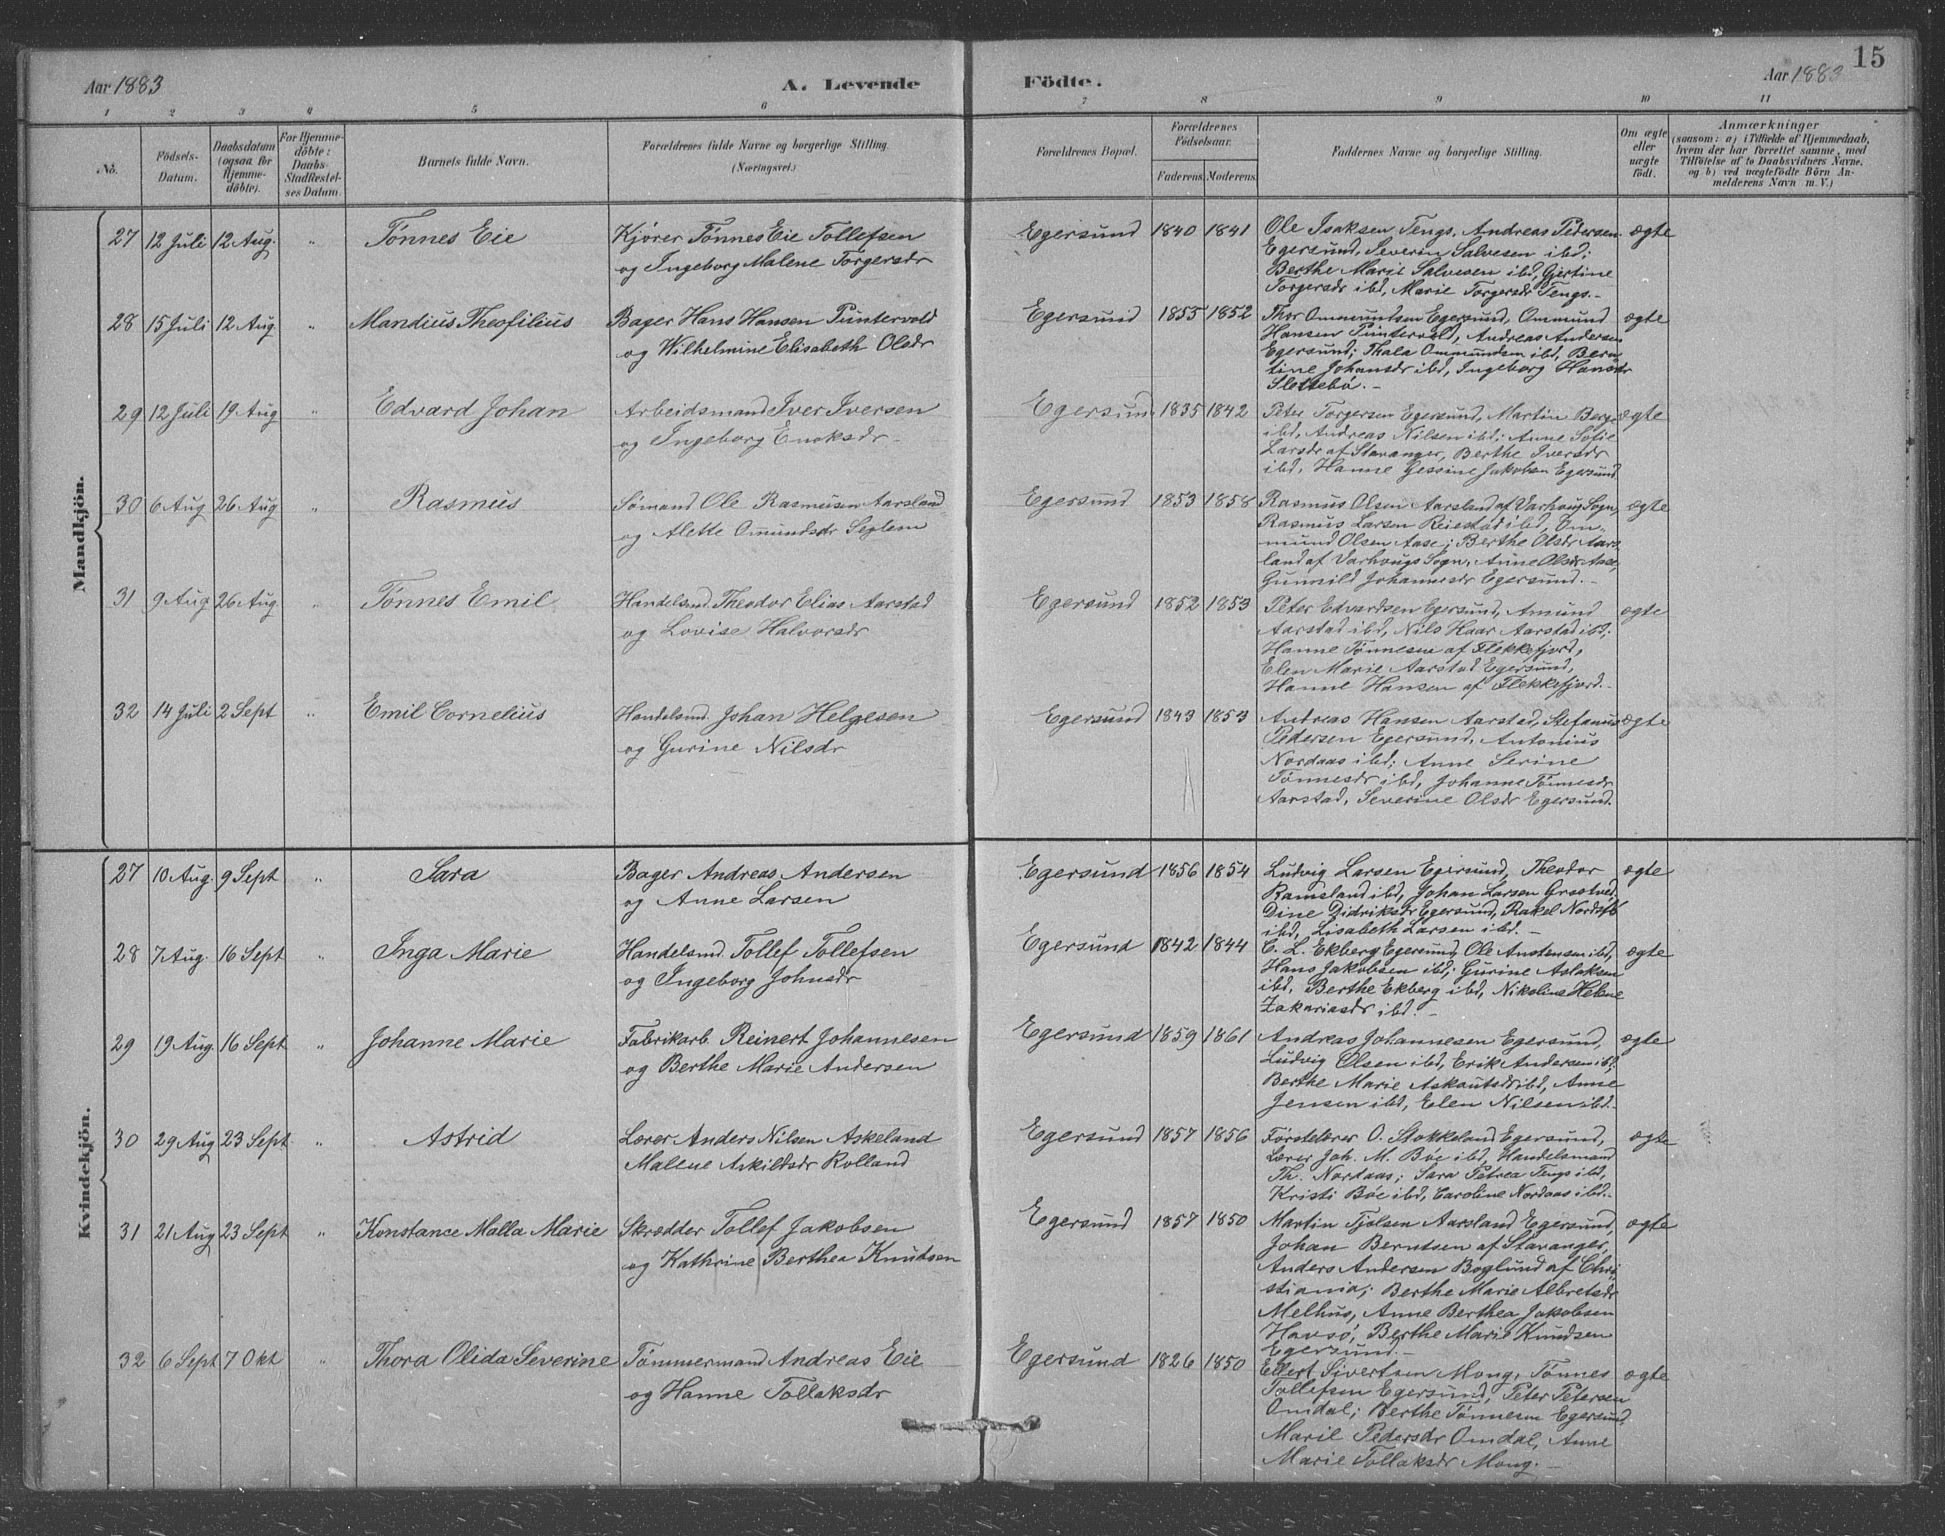 15
Aar 1883
A. Levende
Födte.
Aar 1883
1 2 3 4 5 6 7 8 9 10 11
No.
Födsels-
Datum.
Daabsdatum
(ogsaa for
Hjemme-
döbte).
For Hjemme-
döbte:
Daabs-
Stadfæstel-
ses Datum.
Barnets fulde Navn.
Forældrenes fulde Navne og borgerlige Stilling.
(Næringsvei.)
Forældrenes Bopæl.
Forældrenes
Födselsaar.
Faderens.
Moderens.
Faddernes Navne og borgerlige Stilling.
Om ægte
eller
uægte
födt.
Anmærkninger
(saasom: a) i Tilfælde af Hjemmedaab,
hvem der har forrettet samme, med
Tilföielse af to Daabsvidners Navne,
og b) ved uægtefödte Börn An-
melderens Navn m. V.)
Mandkjön.
27 12 Juli 12 Aug. " Tønnes Eie Kjører Tønnes Eie Tollefsen Egersund 1840 1841 Ole Isaksen Tengs, Andreas Pedersen ægte
og Ingeborg Malene Torgersdr Egersund, Severin Salvesen ibd;
Berthe Marie Salvesen ibd, Gjertine
Torgersdr ibd, Marie Torgersdr Tengs.
28 15 Juli 12 Aug. " Mandius Theofilius Bager Hans Hansen Puntervold Egersund 1855 1852 Thor Ommundsen Egersund, Ommund ægte
og Wilhelmine Elisabeth Olsdr Hansen Puntervold, Andreas Andersen
Egersund; Thala Ommundsen ibd, Bern-
tine Johansdr ibd, Ingeborg Hansdr
Slettebö.
29 12 Juli 19 Aug " Edvard Johan Arbeidsmand Iver Iversen Egersund 1835 1842 Peter Torgersen Egersund, Martin Berg ægte
og Ingeborg Enoksdr ibd, Andreas Nilsen ibd; Anne Sofie
Larsdr af Stavanger, Berthe Iversdr
ibd, Hanne Gessine Jakobsen Egersund
30 6 Aug 26 Aug " Rasmus Sømand Ole Rasmusen Aarsland Egersund 1853 1858 Rasmus Olsen Aarsland af Varhoug Sogn, ægte
og Alette Omundsdr Siglem Rasmus Larsen Reiestad ibd, Om-
mund Olsen Aase; Berthe Olsdr Aars-
land af Varhougs Sogn, Anne Olsdr Aase,
Gunnild Johannesdr Egersund.
31 9 Aug 26 Aug " Tønnes Emil Handelsmd Theodor Elias Aarstad Egersund 1852 1853 Peter Edvardsen Egersund, Amund ægte
og Lovise Halvorsdr Aarstad ibd, Nils Haar Aarstad ibd;
Hanne Tønnesen af Flekkefjord,
Elen Marie Aarstad Egersund,
Hanne Hansen af Flekkefjord.
32 14 Juli 2 Sept " Emil Cornelius Handelsmd. Johan Helgesen Egersund 1849 1853 Andreas Hansen Aarstad, Stefanus ægte
og Gurine Nilsdr Pedersen Egersund, Antonius
Nordaas ibd; Anne Serine
Tønnesdr ibd, Johanne Tønnesdr
Aarstad, Severine Olsdr Egersund.
Kvindekjön.
27 10 Aug. 9 Sept " Sara Bager Andreas Andersen Egersund 1856 1854 Ludvig Larsen Egersund, Theodor ægte
og Anne Larsen Ramsland ibd, Johan Larsen
Dine Didriksdr Egersund, Rakel
ibd, Lisabeth Larsen ibd.
28 7 Aug. 16 Sept " Inga Marie Handelsmd. Tollef Tollefsen Egersund 1842 1844 C. L. Ekberg Egersund, Ole Austensen ibd, ægte
og Ingeborg Johnsdr Hans Jakobsen ibd; Gurine Aslaksen
ibd, Berthe Ekberg ibd, Nikoline Helene
Zakariasdr ibd.
29 19 Aug. 16 Sept " Johanne Marie Fabrikarb. Reinert Johannesen Egersund 1859 1861 Andreas Johannesen Egersund, ægte
og Berthe Marie Andersen Ludvig Olsen ibd, Erik Andersen ibd;
Berthe Marie ibd, Anne
Jensen ibd, Elen Nilsen ibd.
30 29 Aug 23 Sept " Astrid Lærer Anders Nilsen Askeland Egersund 1857 1856 Förstelærer O. Stokkeland Egersund, ægte
Malene Askildsdr Rolland Lærer Joh. M. Böe ibd, Handelsmand
Th. Nordaas; Sara Petrea Tengs ibd,
Kristi Böe ibd, Caroline Nordaas ibd.
31 21 Aug 23 Sept " Konstance Malla Marie Skrædder Tollef Jakobsen Egersund 1857 1850 Martin Aarsland Egersund, ægte
og Kathrine Berthea Knudsen Johan Berntsen af Stavanger,
Anders Andersen Boglund af Chri-
stiania; Berthe Marie Albretsdr
Melhus, Anne Berthea Jakobsen
Havsö, Berthe Marie Knudsen
Egersund.
32 6 Sept 7 Okt " Thora Olida Severine Tømmermand Andreas Eie Egersund 1826 1850 Ellert Sivertsen Mong, Tønnes ægte
og Hanne Tollaksdr Tollefsen Egersund, Peter Petersen
Omdal; Berthe Tønnesen Egersund,
Marie Pedersdr Omdal, Anne
Marie Tollaksdr Mong.